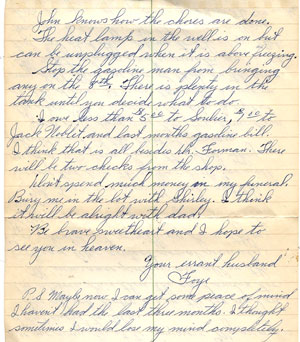 John knows how the chores are done.
The heat lamp in the well is on but
can be unplugged when it is above freezing.
Stop the gasoline man from bringing
any on the 8th. There is plenty in the
tank until you decide what to do.
I owe less than $5.00 to Souhier, $10 to
Jack Noblet, and last months gasoline bill.
I think that is all besids Mr. Forman. There
will be two checks from the shop.
Dont spend much money on my funeral.
Bury me in the lot with Shirley. I think
it will be alright with dad.
Be brave sweetheart and I hope to
see you in heaven.
Your errant husband
Foye
P.S Maybe now I can get some peace of mind
I havent had the last three months. I thought
sometimes I would lose my mind completely.